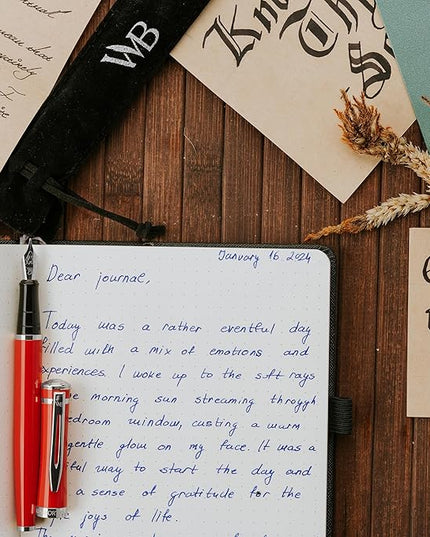 WB
Kn
Th
January 16 2024
Dear journal,
Today was a rather eventful day
filled with a mix of emotions and
experiences. I woke up to the soft rays
morning sun streaming through
edroom window, casting a warm
gentle glow on my face. It was a
iful way to start the day and
a sense of gratitude for the
joys of life.